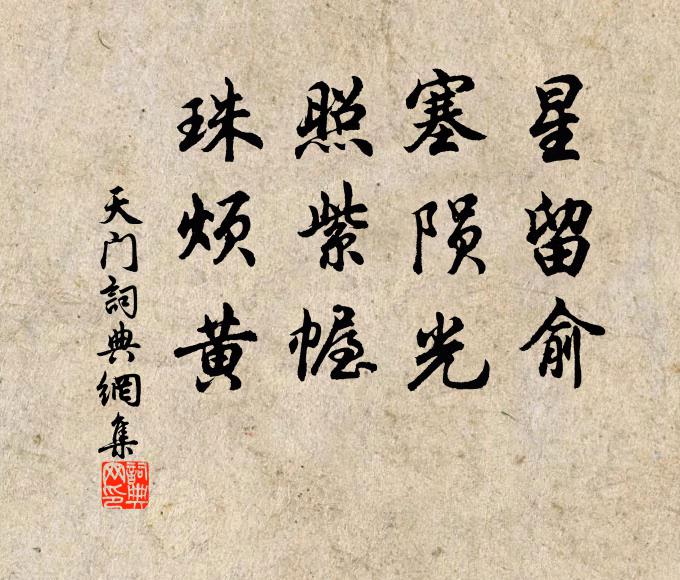 星留俞
塞陨光
照紫幄
珠烦黄
天门詞典網集
詞典
网印